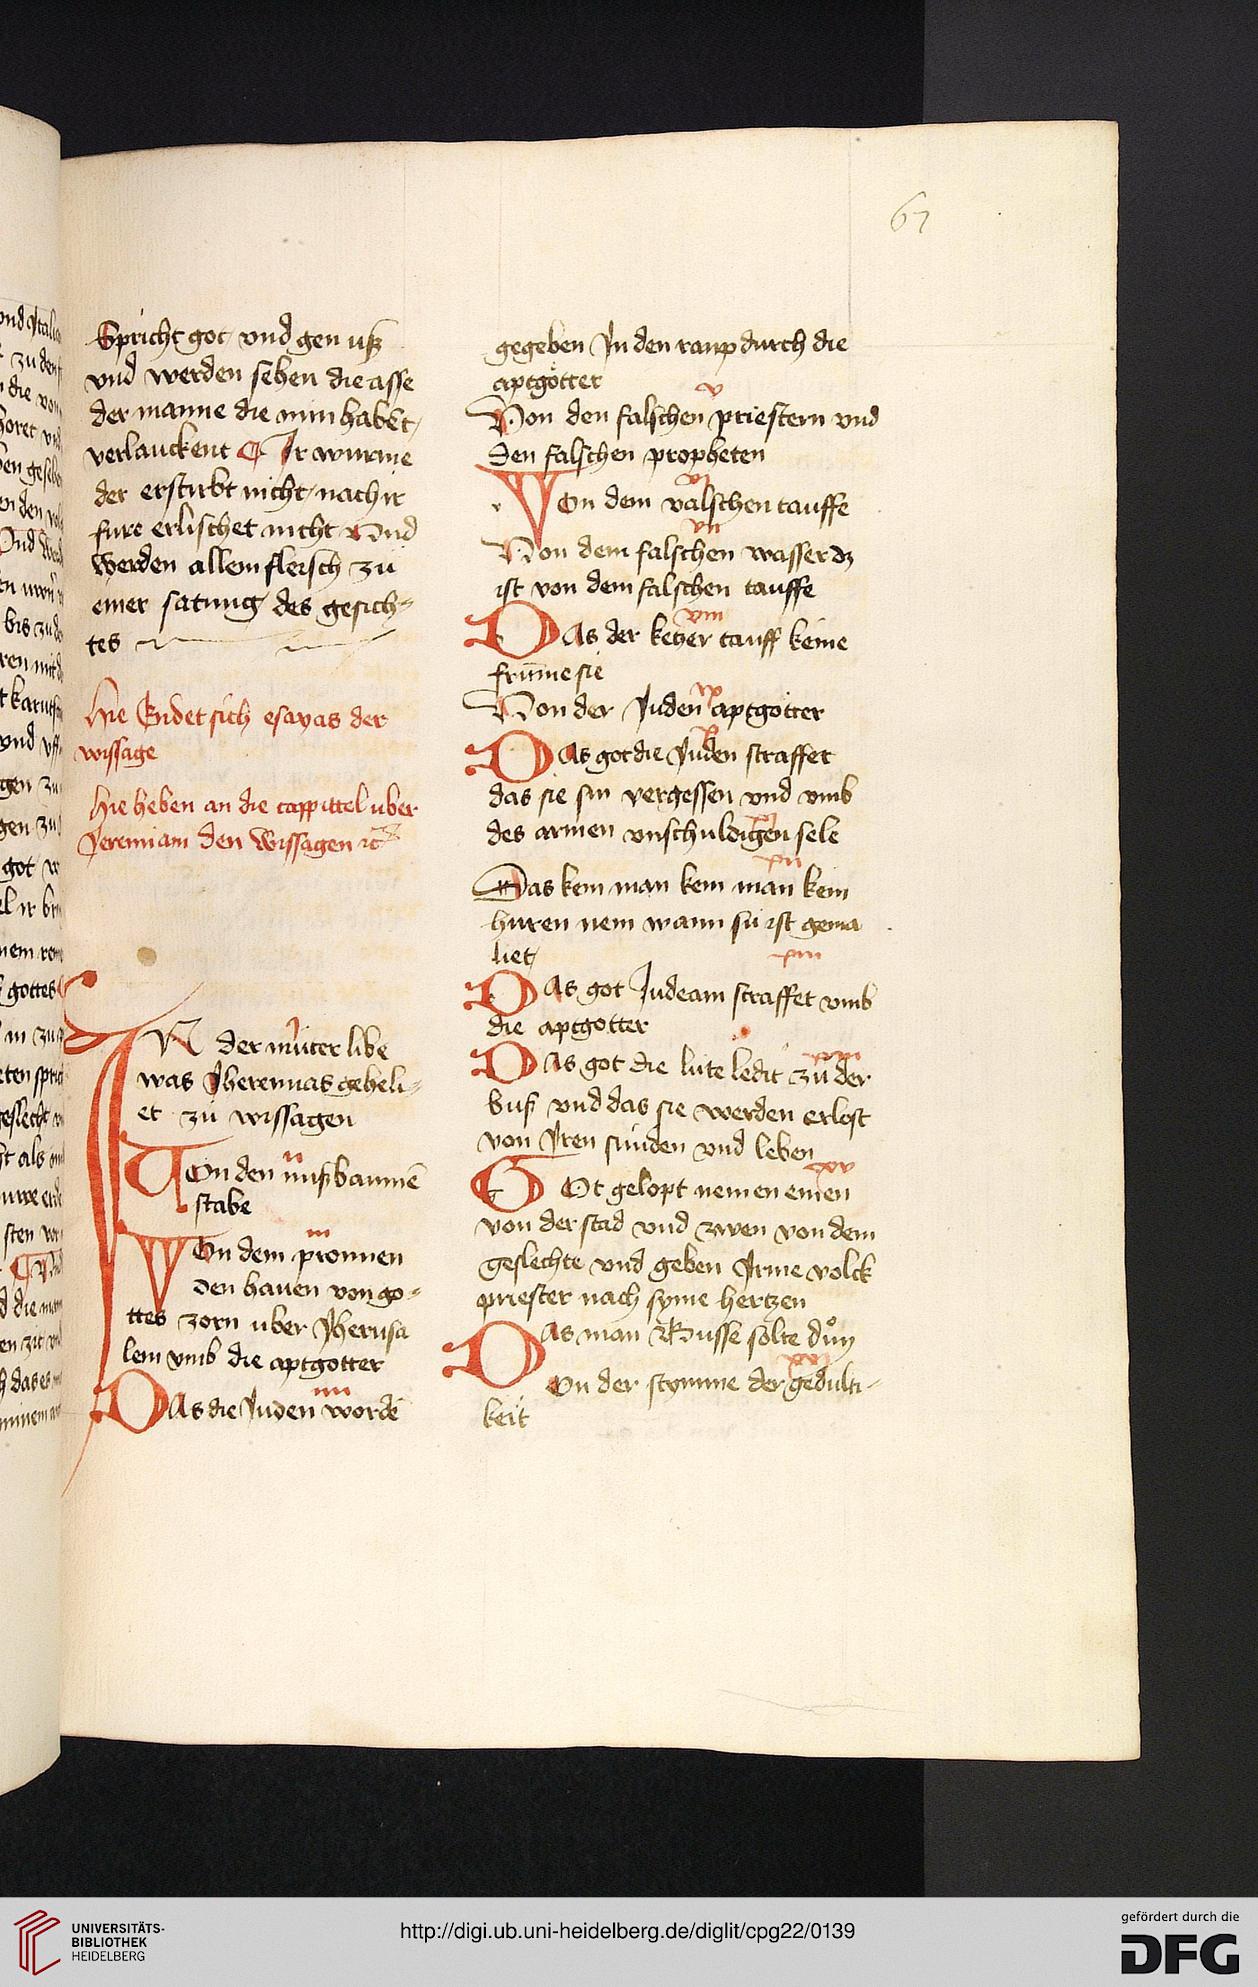 67
Spricht got und gen uß
vnd werden sehen die asse
der manne die min habẽt
verlauckent Ir wurme
der erstirbt nicht nach ir
fure erlischet nicht Vnd
werden allem fleisch zu
einer satung des gesich-
tes
Hie Endet sich esayas der
wissage
Hie heben an die cappittel uber
Jeremiam den Wissagen ic
i
IN der muter libe
was Jheremias geheli-
et zu wissagen
ii
Von den nußbaumẽ
stabe
iii
Von dem pronnen
den hauen von go-
ttes zorn uber Jherusa
lem vmb die aptgotter
iiii
Das die Juden wordẽ
gegeben In den raup durch die
aptgotter
v
Von den falschen priestern vnd
den falschen propheten
vi
Von dem valschen tauffe
vii
Von dem falschen wasser dz
ist von dem falschen tauffe
viii
Das der ketzer tauff keine
frũme sie
ix
Von der Juden aptgotter
x
Das got die Juden straffet
das sie sin vergessen vnd vmb
des armen vnschuldigen sele
xi
xii
Das kem man kem man kem
huren nem wann su ist gema
liet
xiii
Das got Judeam straffet vmb
die aptgotter
xiiii
Das got die lute ledit zu der
buß vnd das sie werden erlost
von Iren sunden vnd leben
xv
Got gelopt nemen einen
von der stad vnd zwen von dem
geslechte vnd geben Irme volck
priester nach syme hertzen
Das man Busse solte duͦn
xvi
Von der stymme der gedulti-
keit
UNIVERSITÄTS-
BIBLIOTHEK
HEIDELBERG
http://digi.ub.uni-heidelberg.de/diglit/cpg22/0139
gefördert durch die
DFG